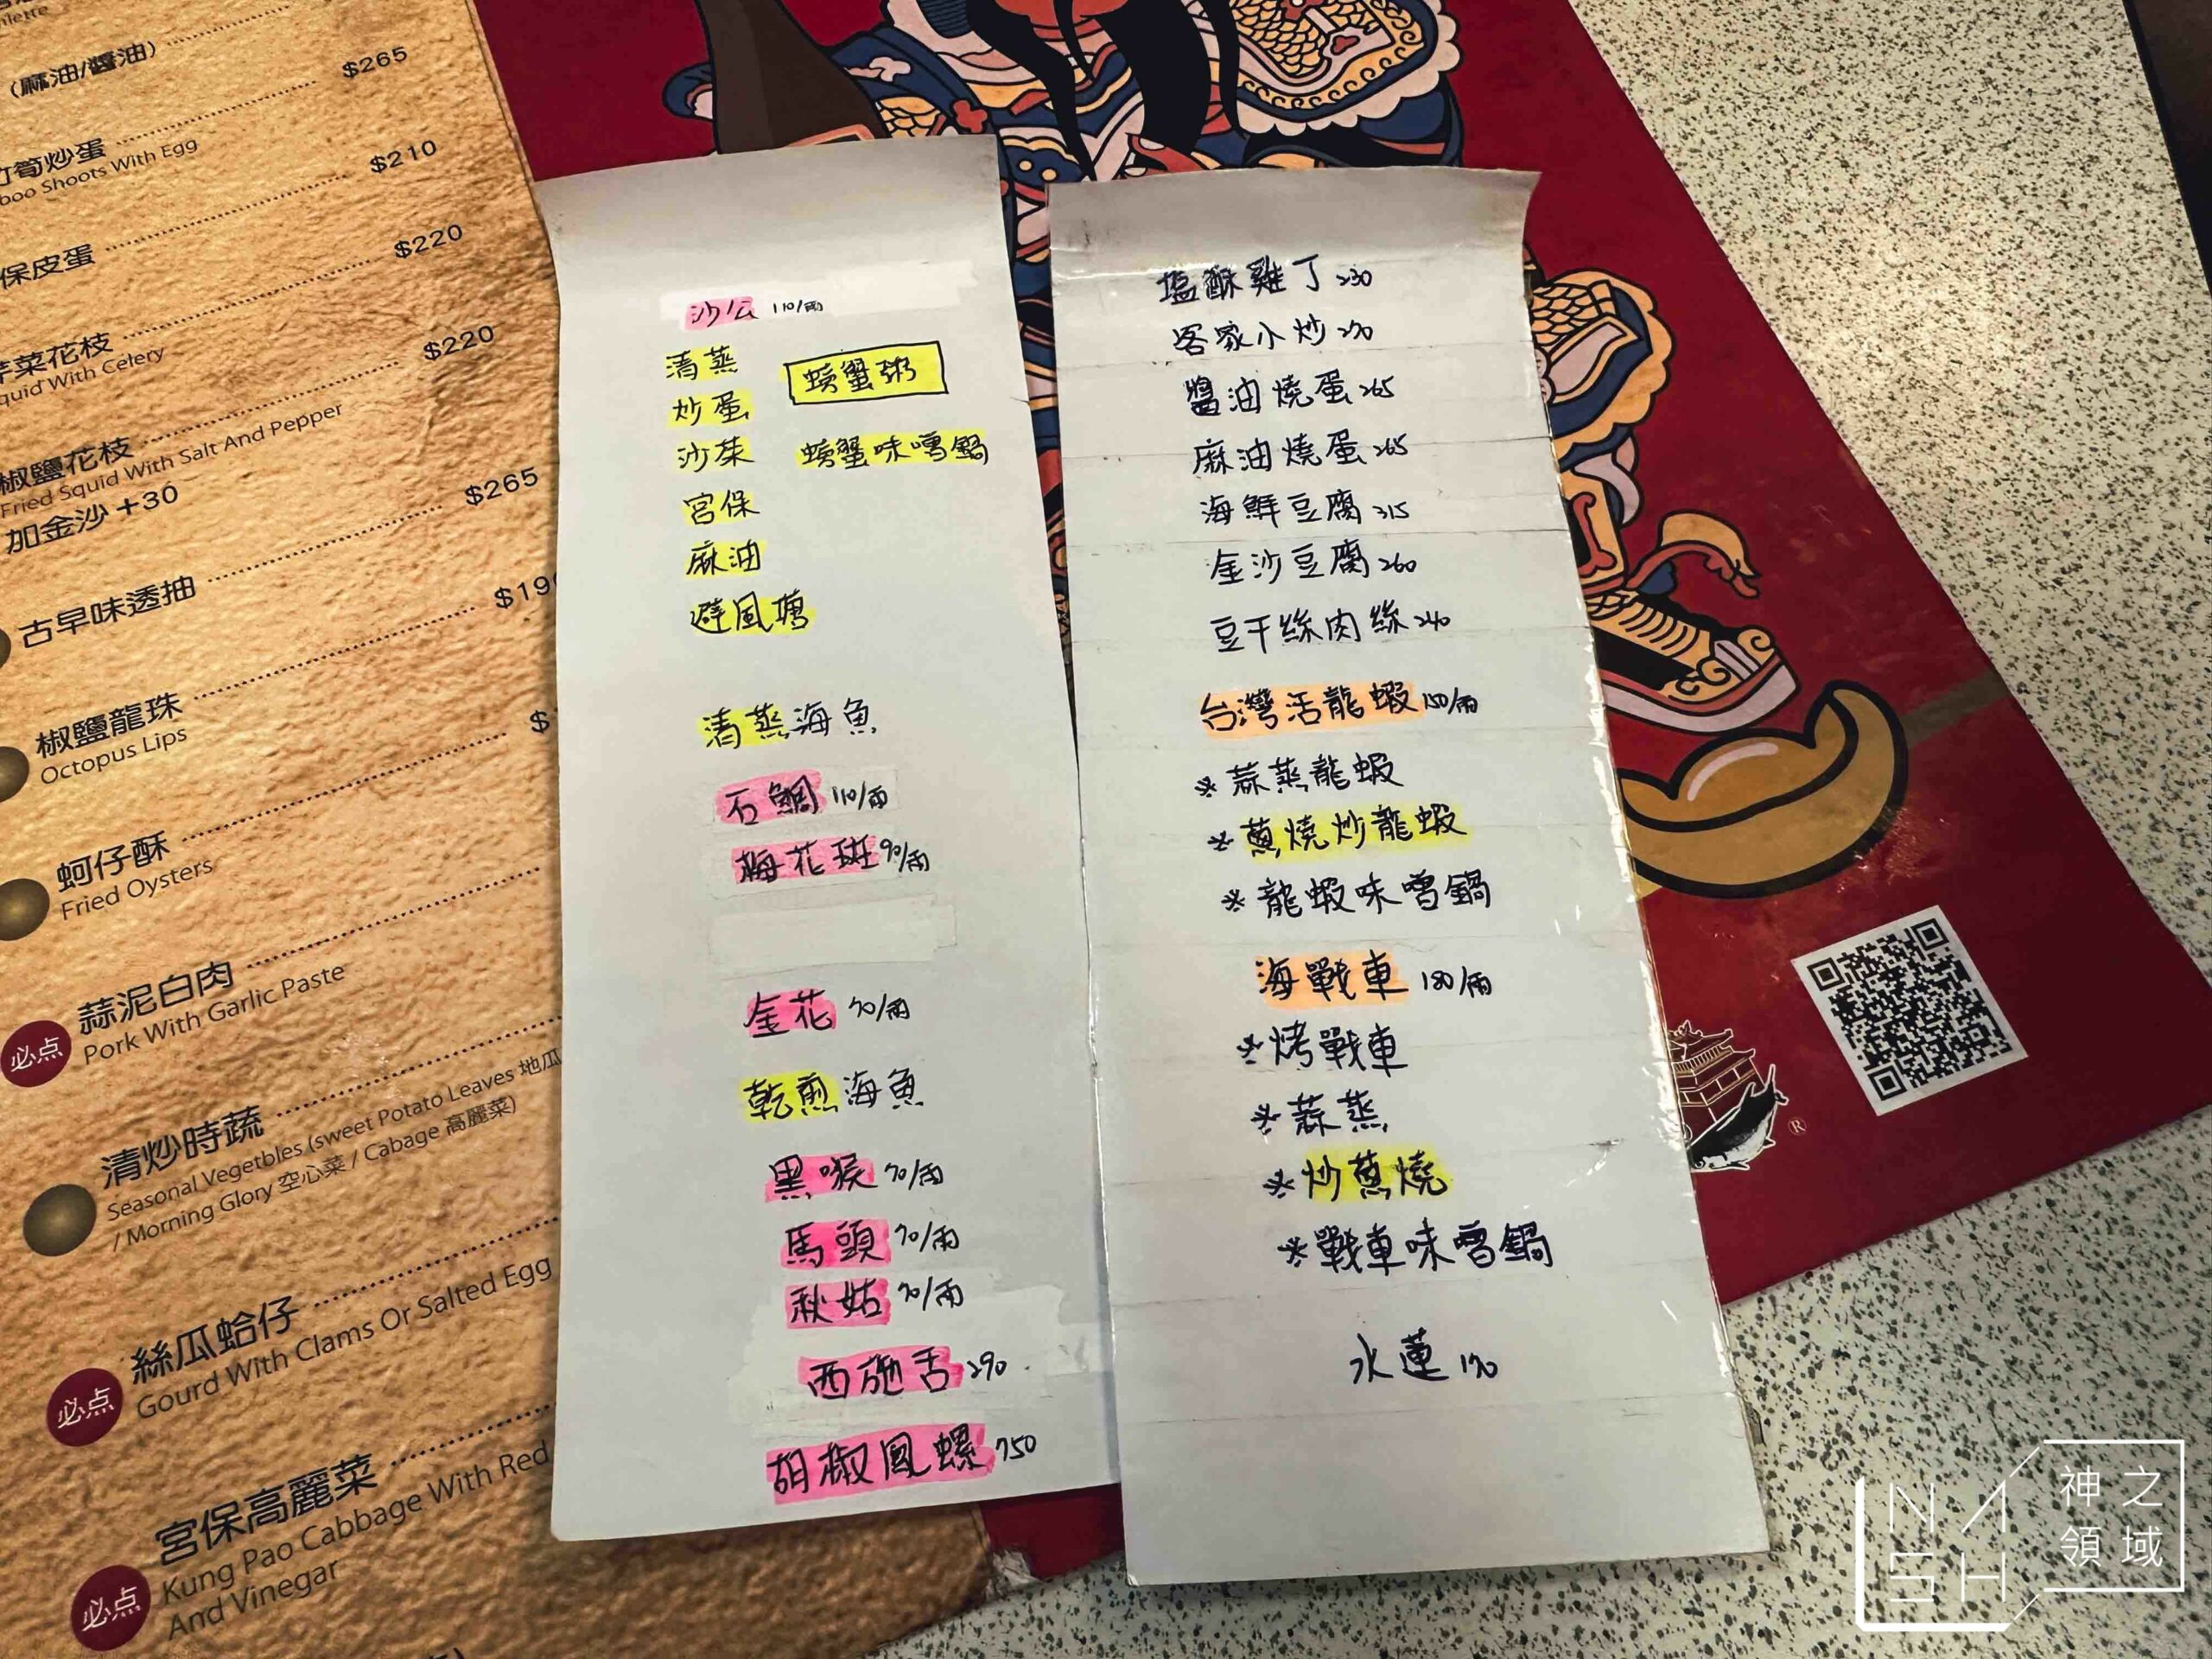 (麻油/醬油)
$265
筍炒蛋
boo Shoots With Egg
$210
保皮蛋
$220
菜花枝
quid With Celery
$220
椒鹽花枝
Fried Squid With Salt And Pepper
加金沙+30
$265
古早味透抽
$19
椒鹽龍珠
Octopus Lips
$
蚵仔酥
Fried Oysters
必点 蒜泥白肉
Pork With Garlic Paste
清炒時蔬
Seasonal Vegetbles (sweet Potato Leaves 地瓜
/ Morning Glory 空心菜 / Cabage 高麗菜)
必点 絲瓜蛤仔
Gourd With Clams Or Salted Egg
必点 宮保高麗菜
Kung Pao Cabbage With Red
And Vinegar
沙公 110/兩
清蒸
螃蟹粥
炒蛋
沙茶 螃蟹味噌鍋
宮保
麻油
避風塘
清蒸海魚
石鯛 110/兩
梅花斑 90/兩
金花 70/兩
乾煎海魚
黑喉 70/兩
馬頭 70/兩
秋姑 70/兩
西施舌 290
胡椒鳳螺 750
塩酥雞丁 230
客家小炒
醬油燒蛋 265
麻油燒蛋 265
海鮮豆腐 315
金沙豆腐 260
豆干絲肉絲 240
台灣活龍蝦 150/兩
※蒜蒸龍蝦
※蔥燒炒龍蝦
※龍蝦味噌鍋
海戰車 180/兩
※烤戰車
※蒜蒸
※炒蔥燒
※戰車味噌鍋
水蓮 170
®
NASH
神之
領域